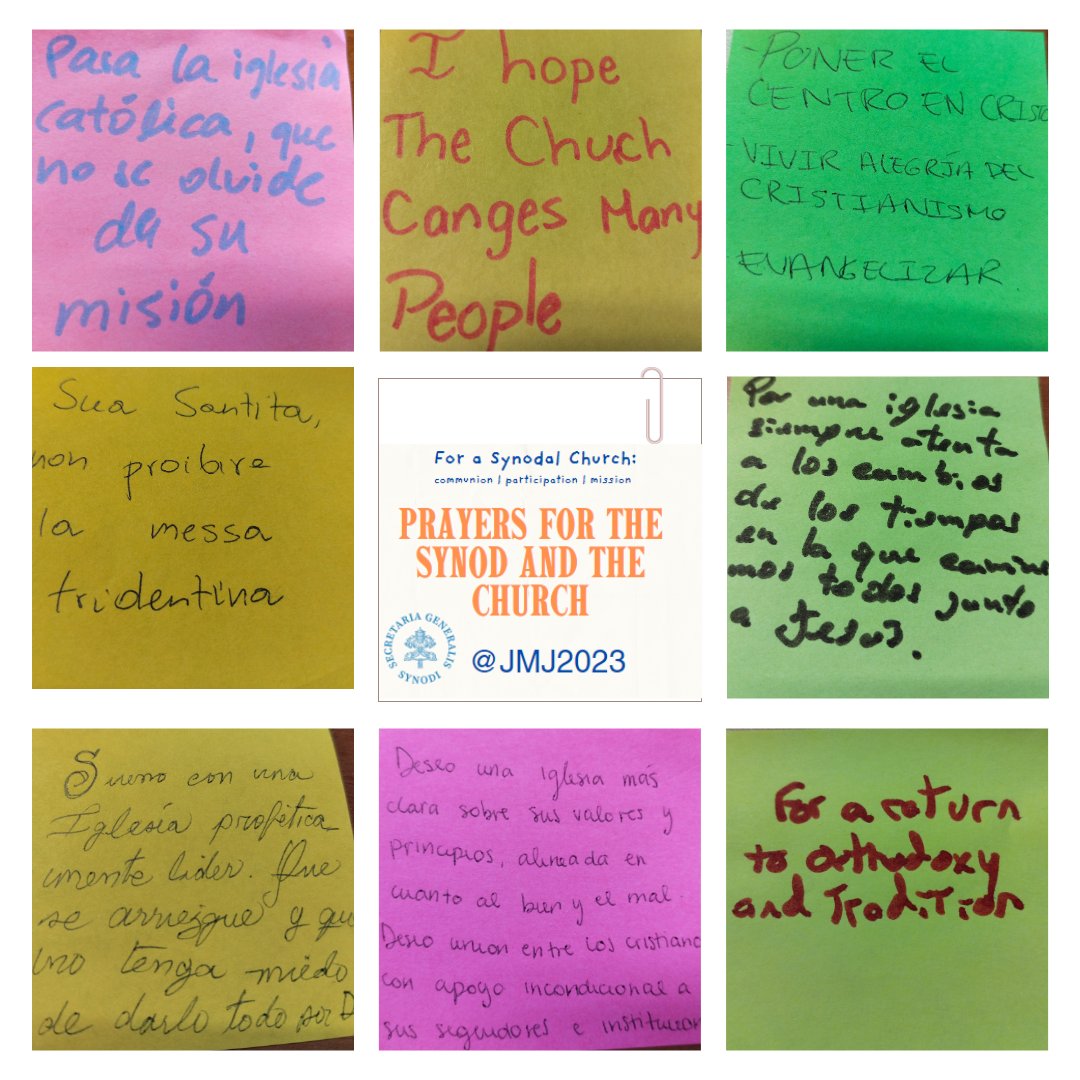 Para la iglesia
católica, que
no se olvide
de su
misión
I hope
The Chuch
Canges Many
People
-PONER EL
CENTRO EN CRISTO
-VIVIR ALEGRÍA DEL
CRISTIANISMO
EVANGELIZAR.
Sua Santita,
non proibire
la messa
tridentina
For a Synodal Church:
communion | participation | mission
PRAYERS FOR THE
SYNOD AND THE
CHURCH
SECRETARIA GENERALIS
SYNODI
@JMJ2023
Por una iglesia
siempre atenta
a los cambios
de los tiempos
en la que camine
mos todos junto
a Jesus.
Sueno con una
Iglesia profetica
mente lider. Que
se arriezgue y qu
no tenga miedo
de darlo todo por D
Deseo una iglesia más
clara sobre sus valores y
principios, alineada en
cuanto al bien y el mal.
Deseo union entre los cristiano
con apoyo incondicional a
sus seguidores e institucion
For a return
to orthodoxy
and Tradition